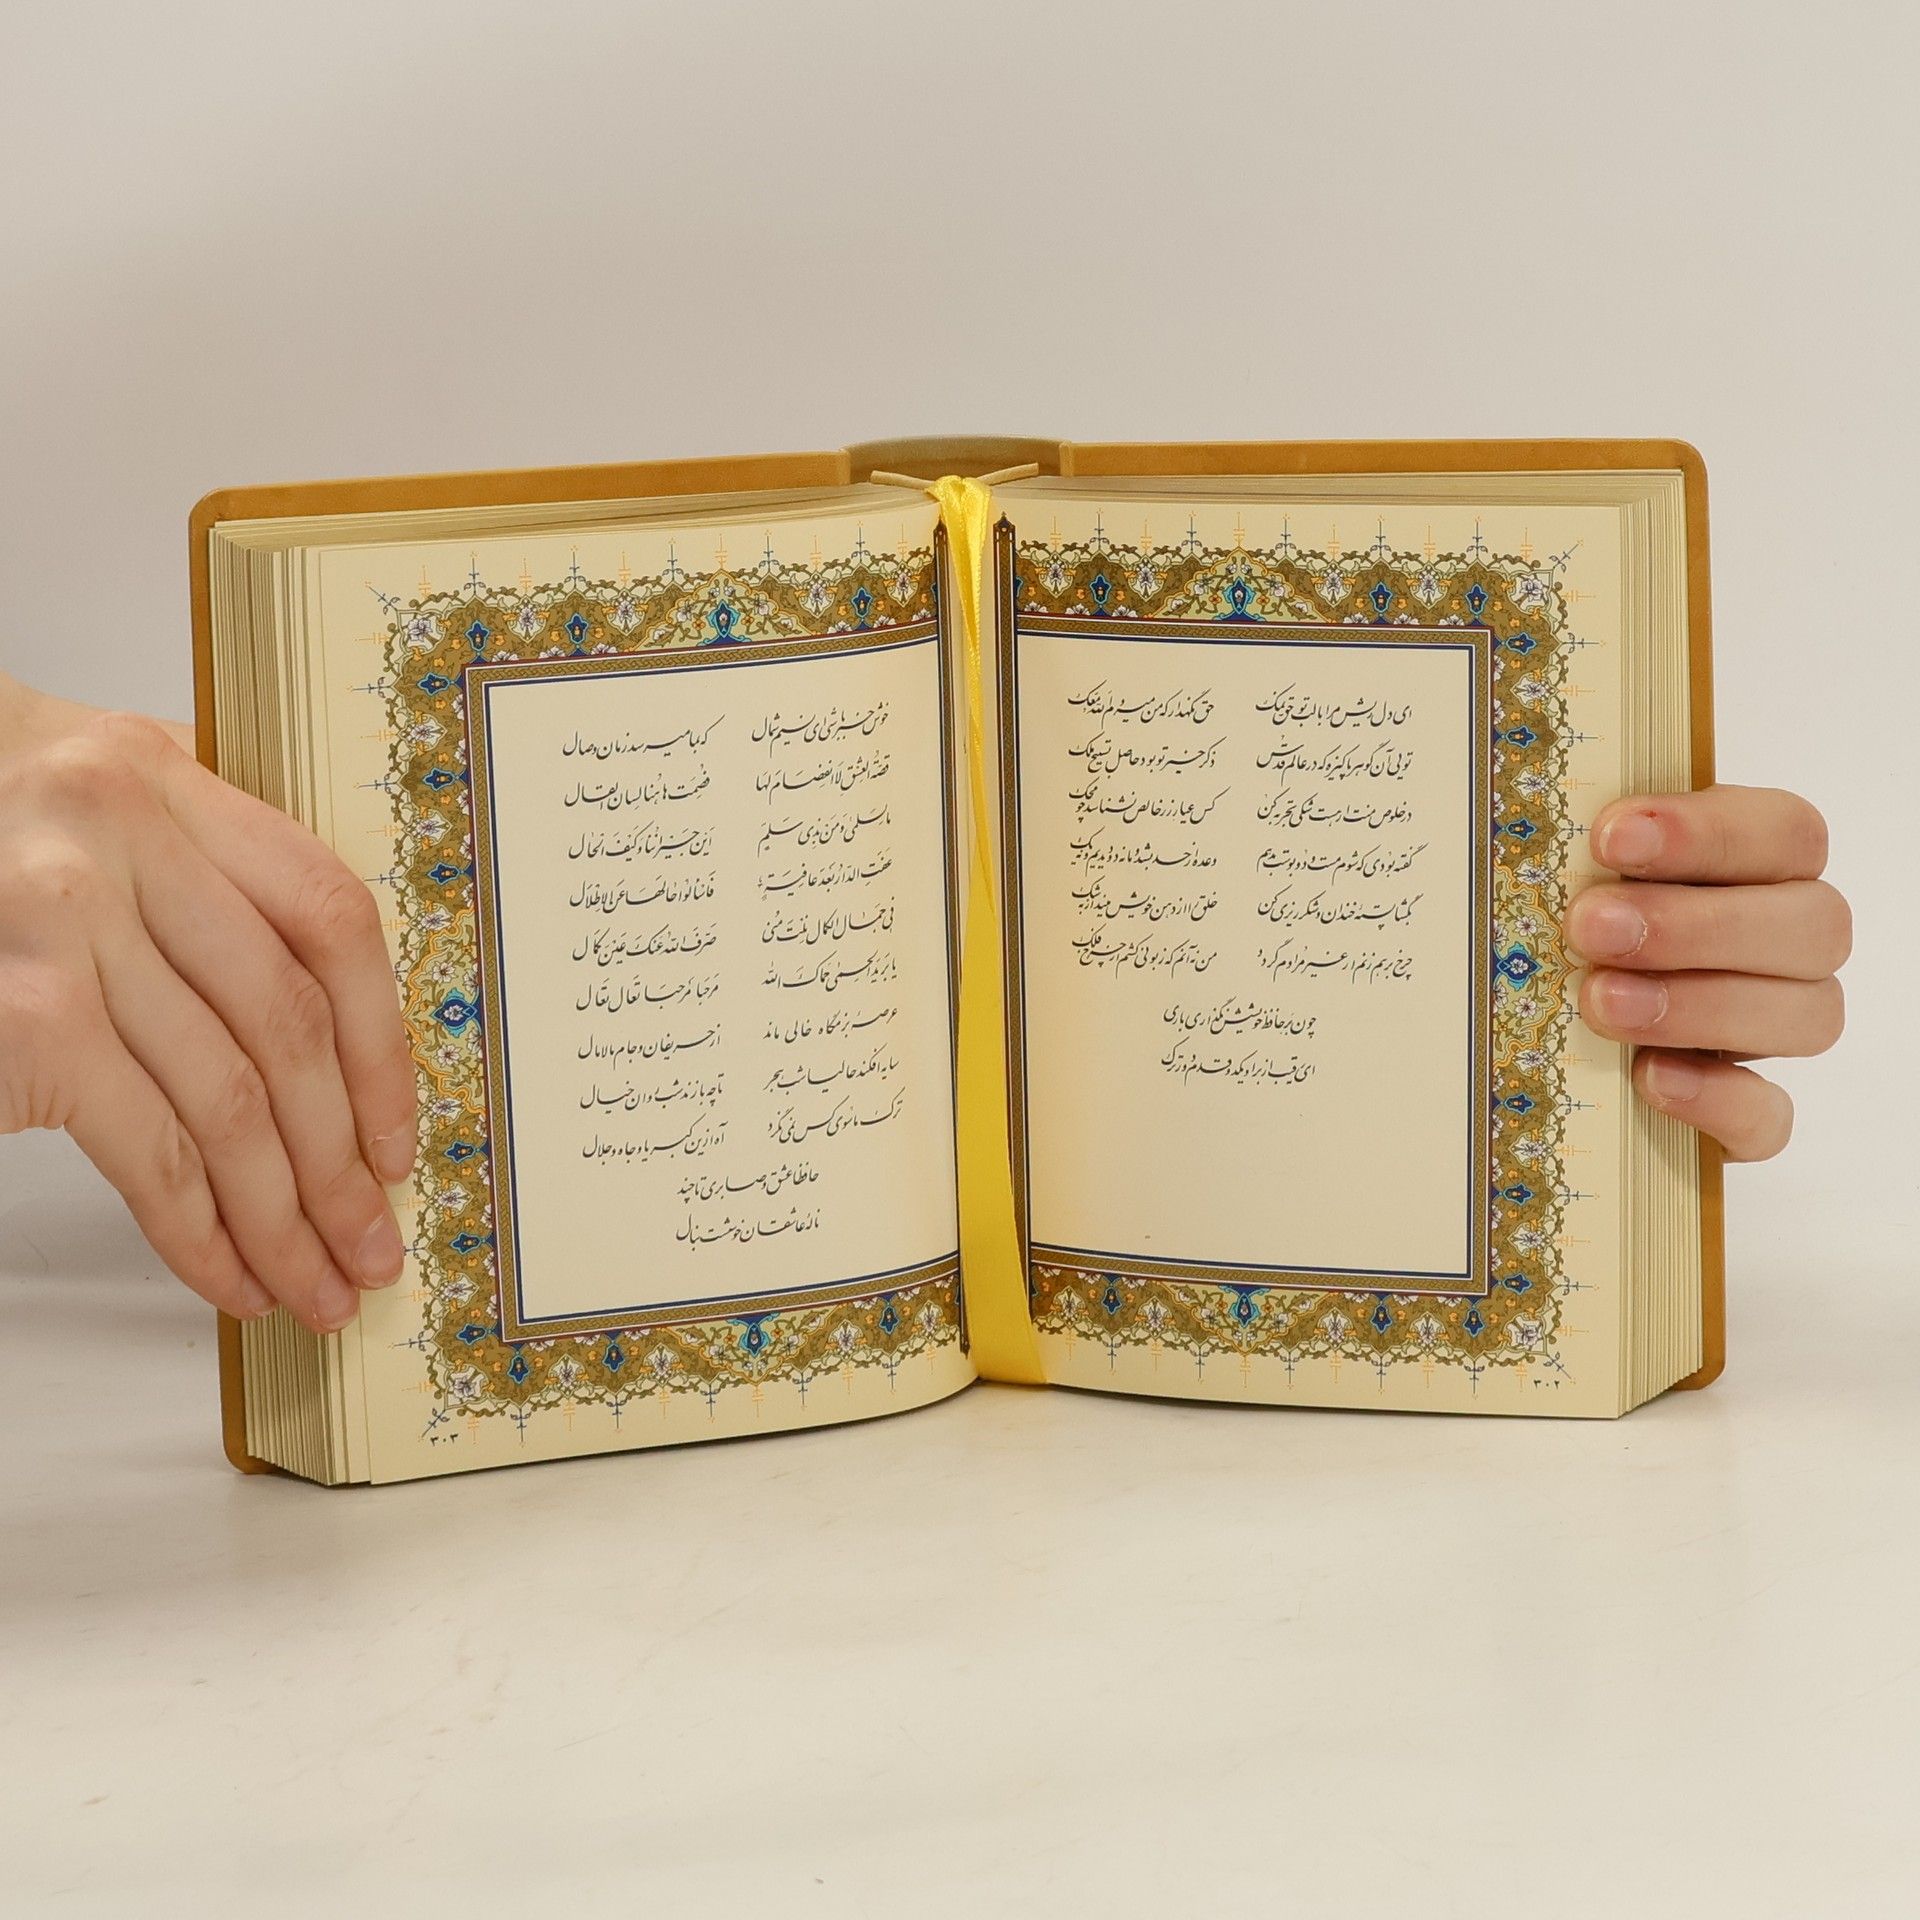 ای دل ریش مرا با لب تو حق نمک حق نگهدار که من میروم الله معک
تویی آن گوهر پاکیزه که در عالم قدس ذکر خیر تو بود حاصل تسبیح ملک
در خلوص منت ار هست شکی تجربه کن کس عیار زر خالص نشناسد چو محک
گفته بودی که شوم مست و دو بوست بدهم وعده از حد بشد و ما نه دو دیدیم و نه یک
بگشا پستهٔ خندان و شکرریزی کن خلق را از دهن خویش مینداز به شک
چرخ برهم زنم ار غیر مرادم گردد من نه آنم که زبونی کشم از چرخ فلک
چون بر حافظ خویشش نگذاری باری
ای رقیب از بر او یکدو قدم دورترک
۳۰۲
خوش خبر باشی ای نسیم شمال که بما میرسد زمان وصال
قصّةُ العِشقِ لَا انفِصامَ لَها فُصِمَت هاهُنا لِسانُ القال
مالِسَلمیٰ وَ مَن بِذی سَلَمٍ اَینَ جیرانُنا وَ کَیفَ الحال
عَفَتِ الدّارُ بَعدَ عافِیَةٍ فَاسأَلوا حالَها عَنِ الاَطلال
فی جَمالِ الکَمالِ نِلتَ مُنیٰ صَرَّفَ اللهُ عَنکَ عَینَ کَمال
یا بَریدَ الحِمیٰ حَماکَ الله مَرحَبا مَرحَبا تَعال تَعال
عرصهٔ بزمگاه خالی ماند از حریفان و جام مالامال
سایه افکند حالیا شب هجر تا چه بازند شب روان خیال
ترک ما سوی کس نمی نگرد آه ازین کبریا و جاه و جلال
حافظا عشق و صابری تا چند
نالهٔ عاشقان خوشست بنال
۳۰۳